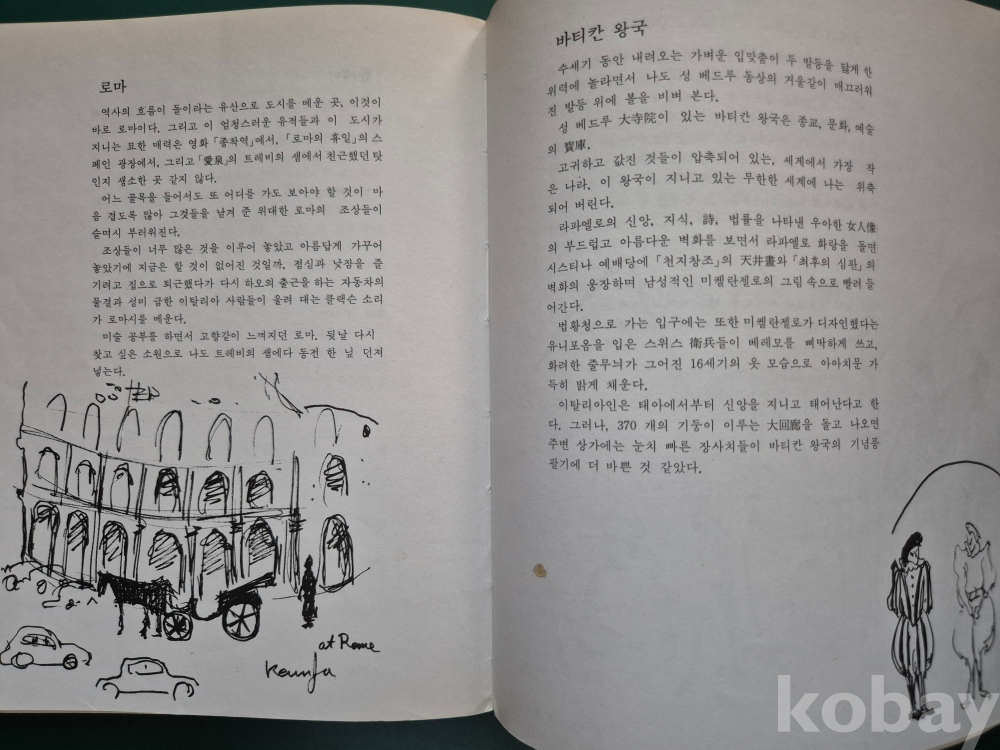 로마
역사의 흐름이 돌이라는 유산으로 도시를 메운 곳, 이것이
바로 로마이다. 그리고 이 엄청스러운 유적들과 이 도시가
지니는 묘한 매력은 영화 「종착역」에서, 「로마의 휴일」의 스
페인 광장에서, 그리고 「愛泉」의 트레비의 샘에서 친근했던 탓
인지 생소한 곳 같지 않다.
어느 골목을 들어서도 또 어디를 가도 보아야 할 것이 마
음 겹도록 많아 그것들을 남겨 준 위대한 로마의 조상들이
슬며시 부러워진다.
조상들이 너무 많은 것을 이루어 놓았고 아름답게 가꾸어
놓았기에 지금은 할 것이 없어진 것일까, 점심과 낮잠을 즐
기려고 집으로 퇴근했다가 다시 하오의 출근을 하는 자동차의
물결과 성미 급한 이탈리아 사람들이 울려 대는 클랙슨 소리
가 로마시를 메운다.
미술 공부를 하면서 고향같이 느껴지던 로마. 뒷날 다시
찾고 싶은 소원으로 나도 트레비의 샘에다 동전 한 닢 던져
넣는다.
at Rome
바티칸 왕국
수세기 동안 내려오는 가벼운 입맞춤이 두 발등을 닳게 한
위력에 놀라면서 나도 성 베드루 동상의 거울같이 매끄러워
진 발등 위에 볼을 비벼 본다.
성 베드루 大寺院이 있는 바티칸 왕국은 종교, 문화, 예술
의 寶庫.
고귀하고 값진 것들이 압축되어 있는, 세계에서 가장 작
은 나라. 이 왕국이 지니고 있는 무한한 세계에 나는 위축
되어 버린다.
라파엘로의 신앙, 지식, 詩, 법률을 나타낸 우아한 女人像
의 부드럽고 아름다운 벽화를 보면서 라파엘로 화랑을 돌면
시스티나 예배당에 「천지창조」의 天井畫와 「최후의 심판」의
벽화의 웅장하며 남성적인 미켈란젤로의 그림 속으로 빨려 들
어간다.
법황청으로 가는 입구에는 또한 미켈란젤로가 디자인했다는
유니포옴을 입은 스위스 衛兵들이 베레모를 삐딱하게 쓰고,
화려한 줄무늬가 그어진 16세기의 옷 모습으로 아아치문 가
득히 밝게 채운다.
이탈리아인은 태아에서부터 신앙을 지니고 태어난다고 한
다. 그러나, 370 개의 기둥이 이루는 大回廊을 돌고 나오면
주변 상가에는 눈치 빠른 장사치들이 바티칸 왕국의 기념품
팔기에 더 바쁜 것 같았다.
kobay